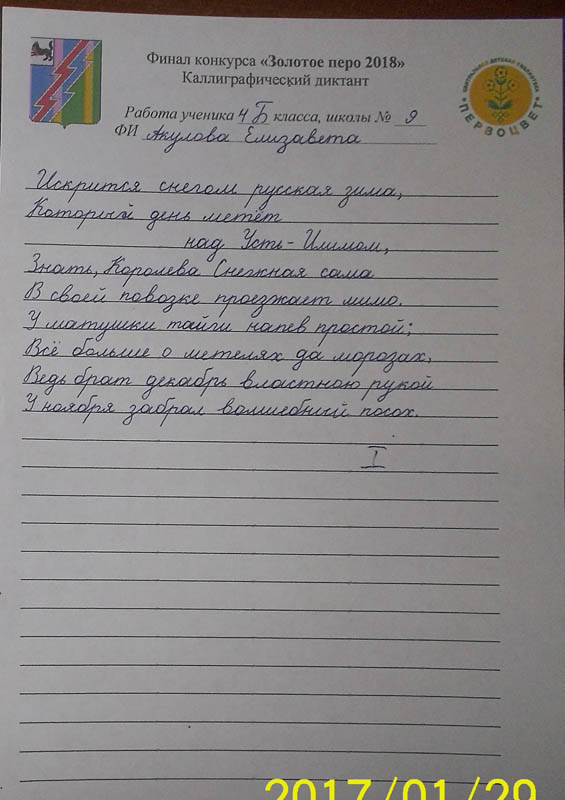 Финал конкурса «Золотое перо 2018»
Каллиграфический диктант
ЦЕНТРАЛЬНАЯ ДЕТСКАЯ БИБЛИОТЕКА
"ПЕРВОЦВЕТ"
Работа ученика 4 Б класса, школы № 9
ФИ Акулова Елизавета
Искрится снегом русская зима,
Который день метёт
над Усть-Илимом,
Знать, Королева Снежная сама
В своей повозке проезжает мимо.
У матушки тайги напев простой;
Всё больше о метелях да морозах,
Ведь брат декабрь властною рукой
У ноября забрал волшебный посох.
I
2017/01/29